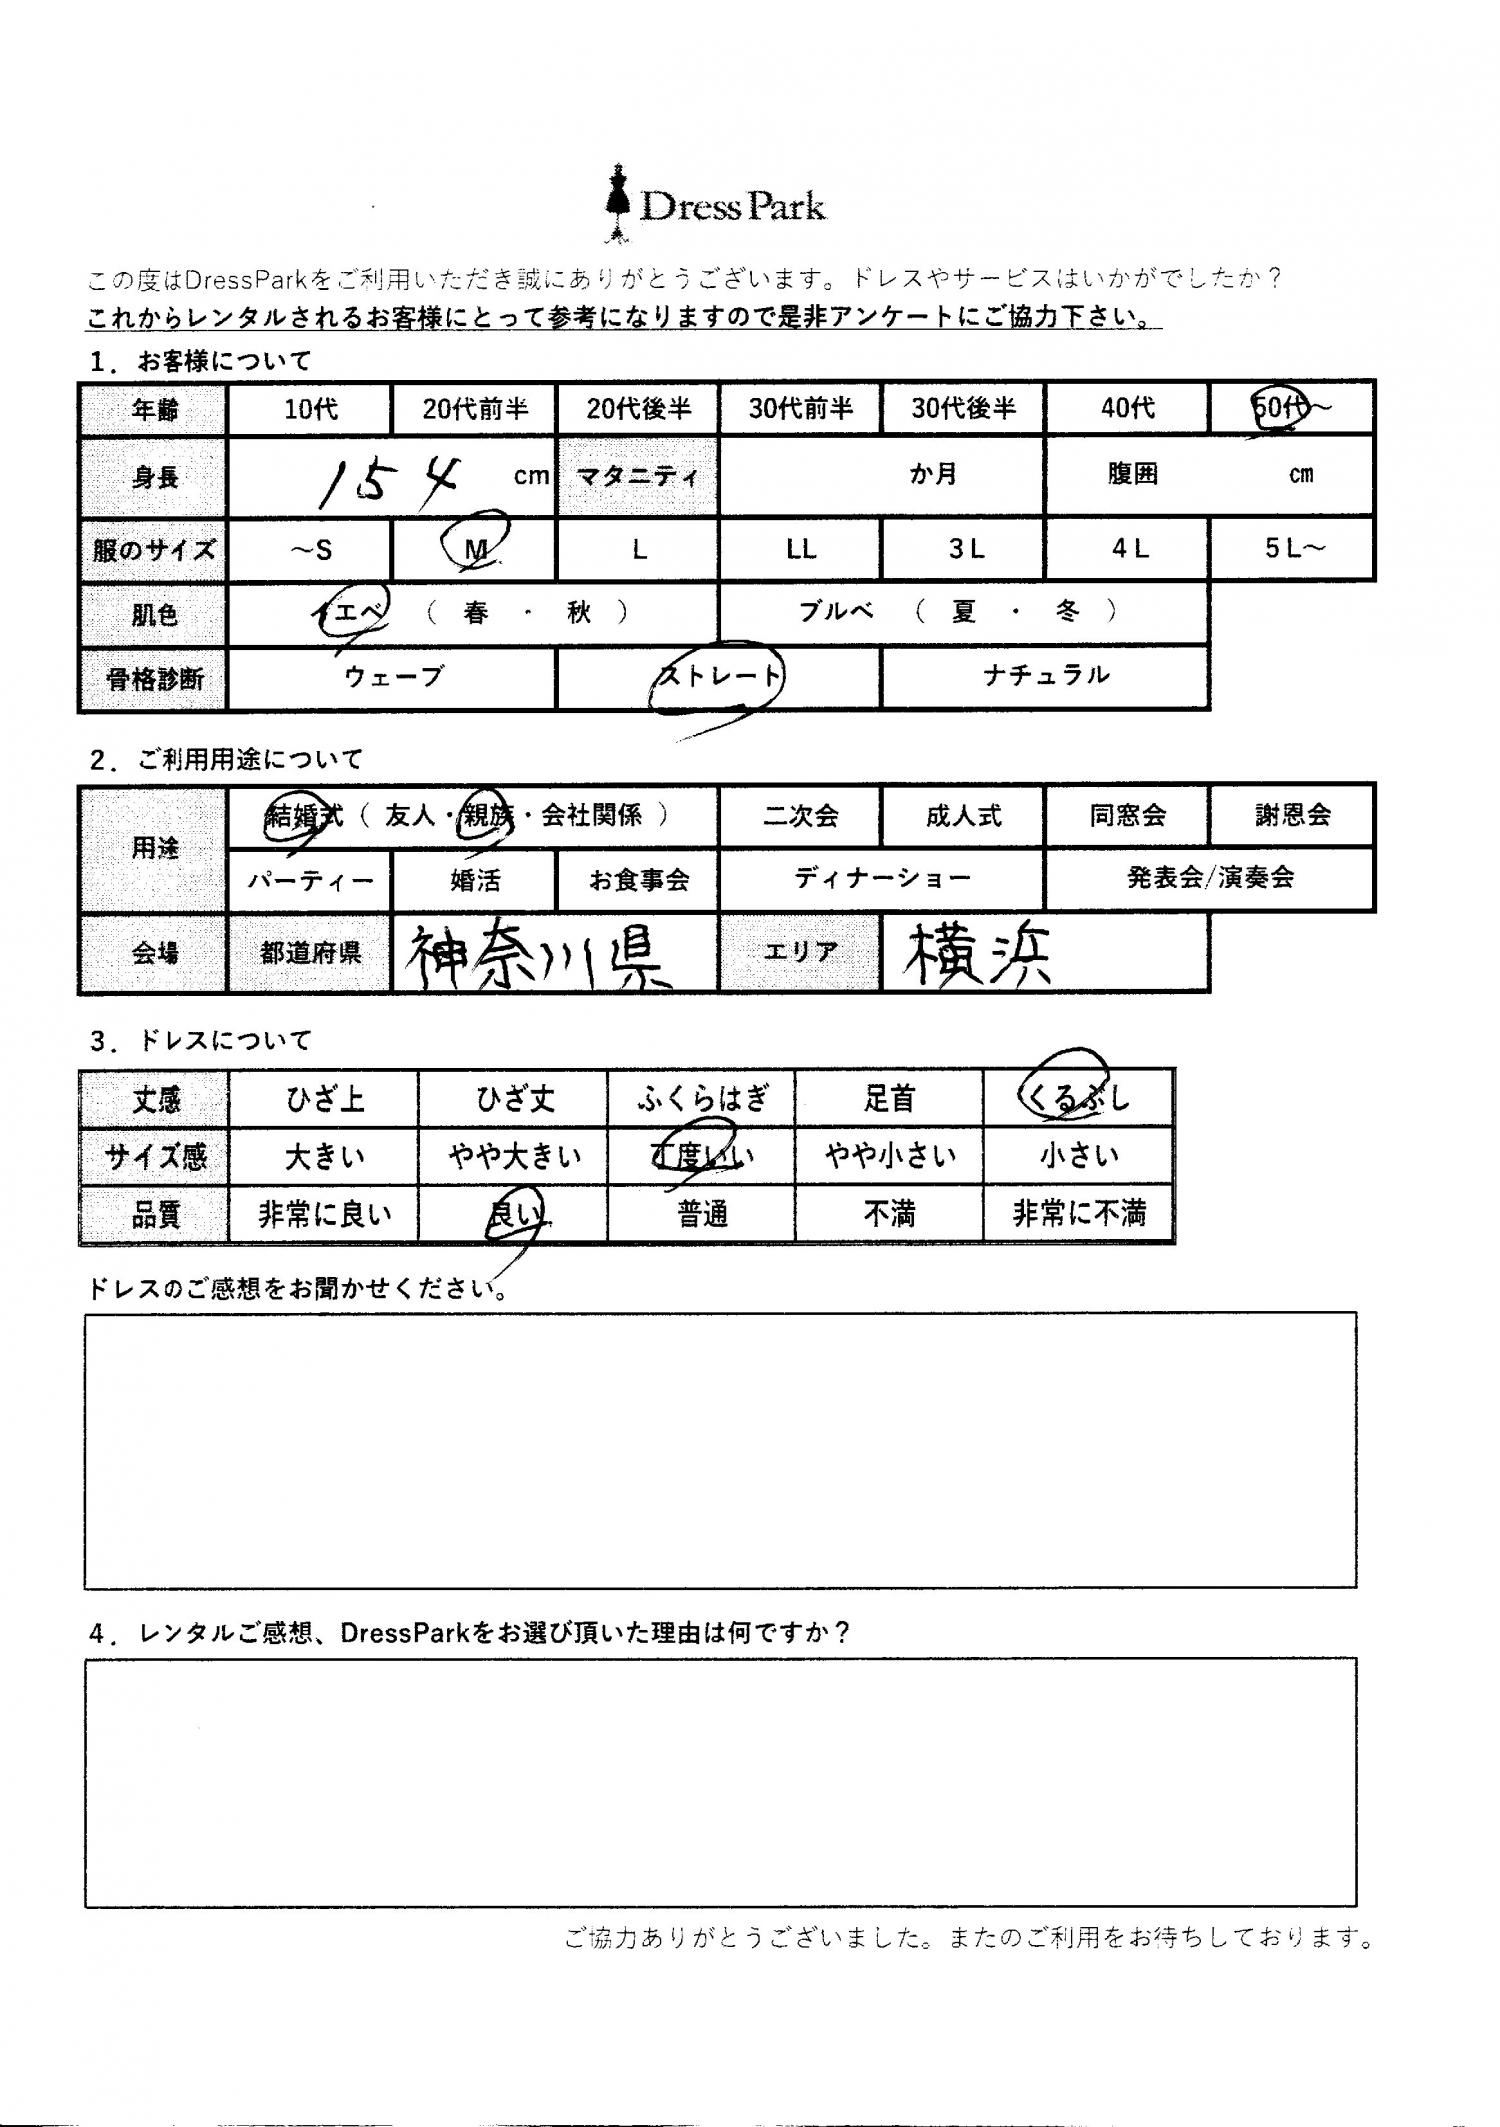 Dress Park
この度はDressParkをご利用いただき誠にありがとうございます。ドレスやサービスはいかがでしたか？
これからレンタルされるお客様にとって参考になりますので是非アンケートにご協力下さい。
1．お客様について
年齢 10代 20代前半 20代後半 30代前半 30代後半 40代 50代～
身長 154 cm マタニティ か月 腹囲 cm
服のサイズ ～S M L LL 3L 4L 5L～
肌色 イエベ（ 春 ・ 秋 ） ブルベ （ 夏 ・ 冬 ）
骨格診断 ウェーブ ストレート ナチュラル
2．ご利用用途について
用途 結婚式（ 友人・親族・会社関係 ） 二次会 成人式 同窓会 謝恩会
パーティー 婚活 お食事会 ディナーショー 発表会/演奏会
会場 都道府県 神奈川県 エリア 横浜
3．ドレスについて
丈感 ひざ上 ひざ丈 ふくらはぎ 足首 くるぶし
サイズ感 大きい やや大きい 丁度いい やや小さい 小さい
品質 非常に良い 良い 普通 不満 非常に不満
ドレスのご感想をお聞かせください。
4．レンタルご感想、DressParkをお選び頂いた理由は何ですか？
ご協力ありがとうございました。またのご利用をお待ちしております。